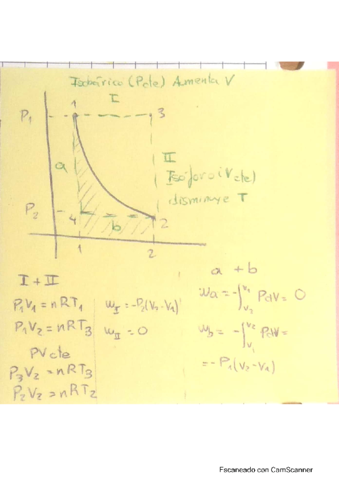 Isobárico (Pcte) Aumenta V
I
P₁ 1 3
a
II
Isócoro (Vcte)
disminuye T
P₂ 4 b 2
1 2
I + II
P₁V₁ = nRT₁
P₁V₂ = nRT₃
PV cte
P₃V₂ = nRT₃
P₂V₂ = nRT₂
W_I = -P₁(V₂-V₁)
W_II = 0
a + b
Wa = -∫ PdV = 0
W_b = -∫ PdV =
= -P₁(V₂-V₁)
Escaneado con CamScanner